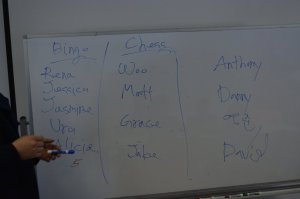 Bingo
Rena
Jessica
Jasmine
Ura
Alicia
5
Chess
Woo
Matt
Gracie
Jake
Anthony
Danny
David